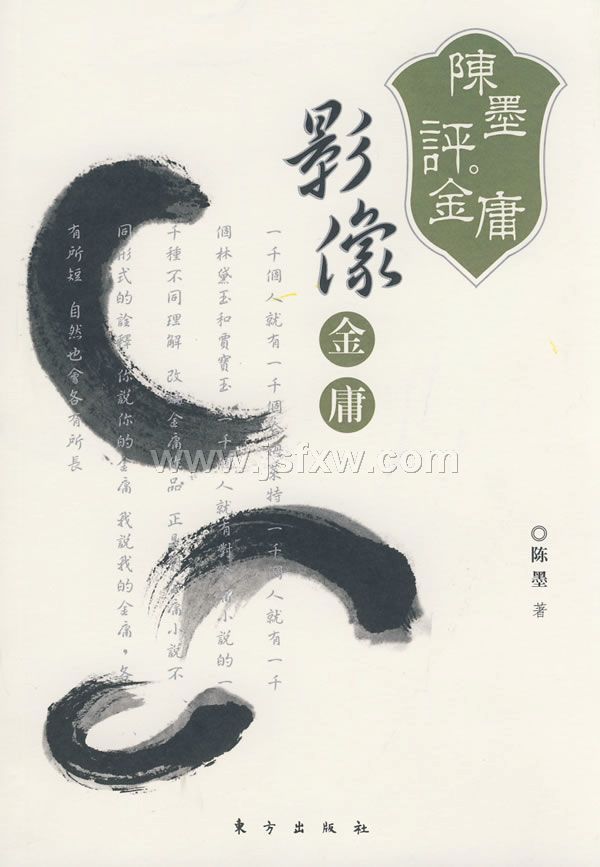 陳墨
評。金庸
影像
金庸
一千個人就有一千個 萊特 一千個人就有一千
個林黛玉和賈寶玉 一千 人就有對 小說的一
千種不同理解 改 金庸 品 正是 庸小說不
同形式的詮釋 你說你的金庸 我說我的金庸,各
有所短 自然也會各有所長
www.jsfxw.com
◎陈墨 著
東方出版社